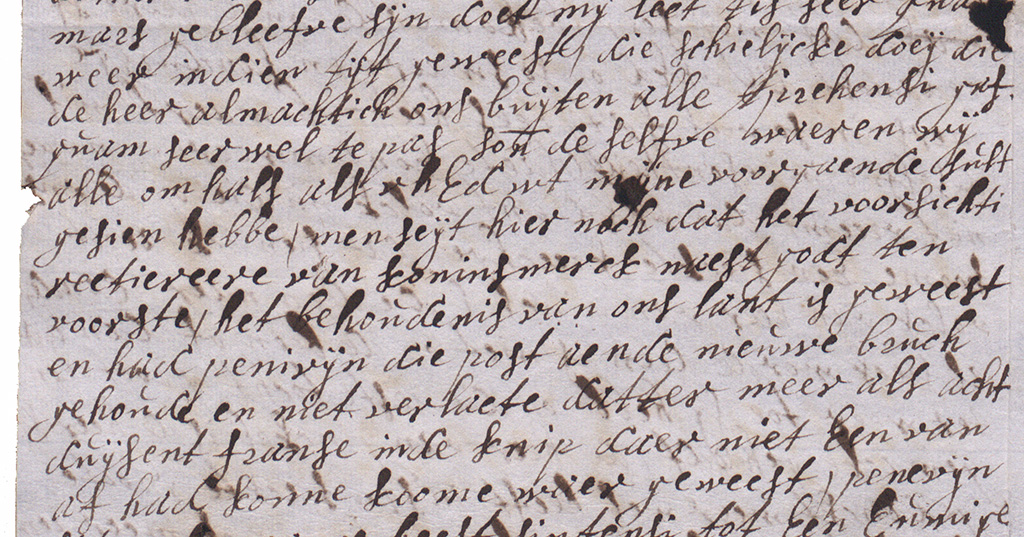 mars gebleefve sijn doet mij leet tis seer
weer indien tijt geweest / die schielijcke doeij die
de heer almachtich ons buijten alle aprehensi gaf
quam seer wel te pas son de selfve waeren wij
alle om hals als vhEd wt mijne voorgaende sult
gesien hebbe / men seijt hier noch dat het voorsichti
reetiereere van koninsmerck naest godt ten
voorste / het behoudenis van ons lant is geweest
en had peniwijn die post aende nieuwe bruch
gehoude en niet verlaete datter meer als acht
duijsent franse inde knip daer niet Een van
af had konne koome waer geweest / penewijn
heeft sintensi tot Een Eunige